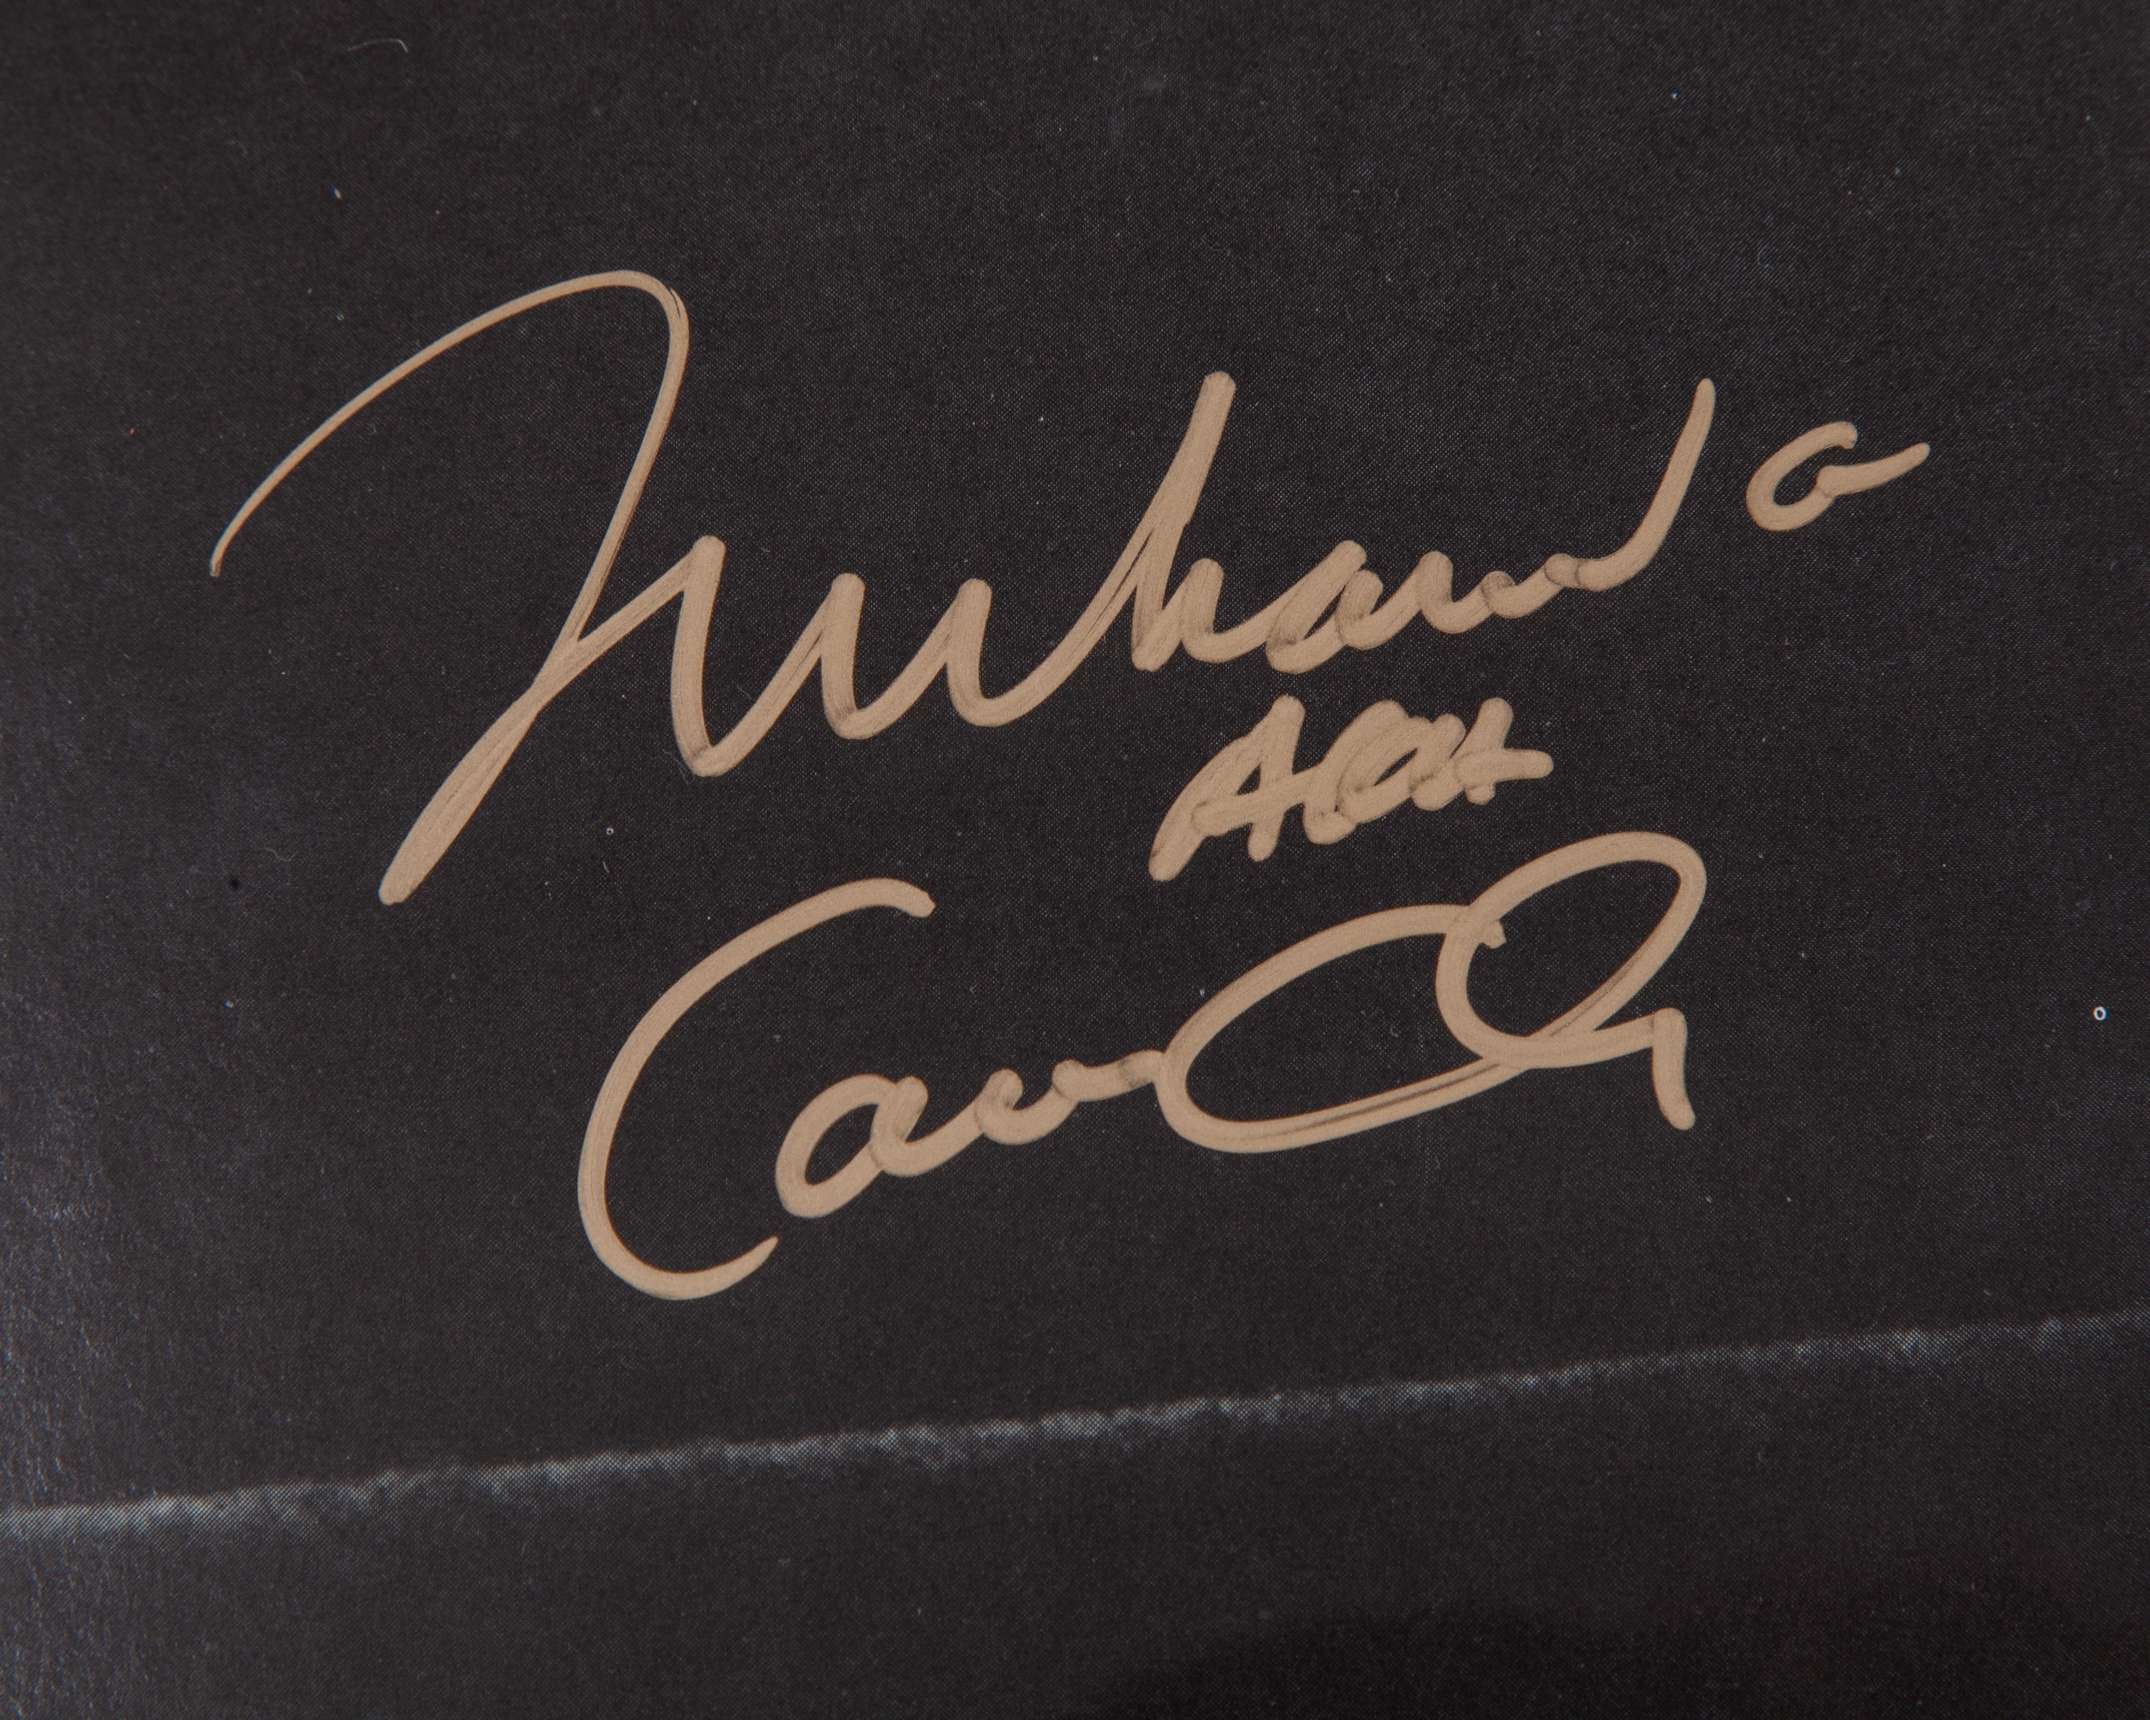 Muhammad
AKA
Cassius Clay